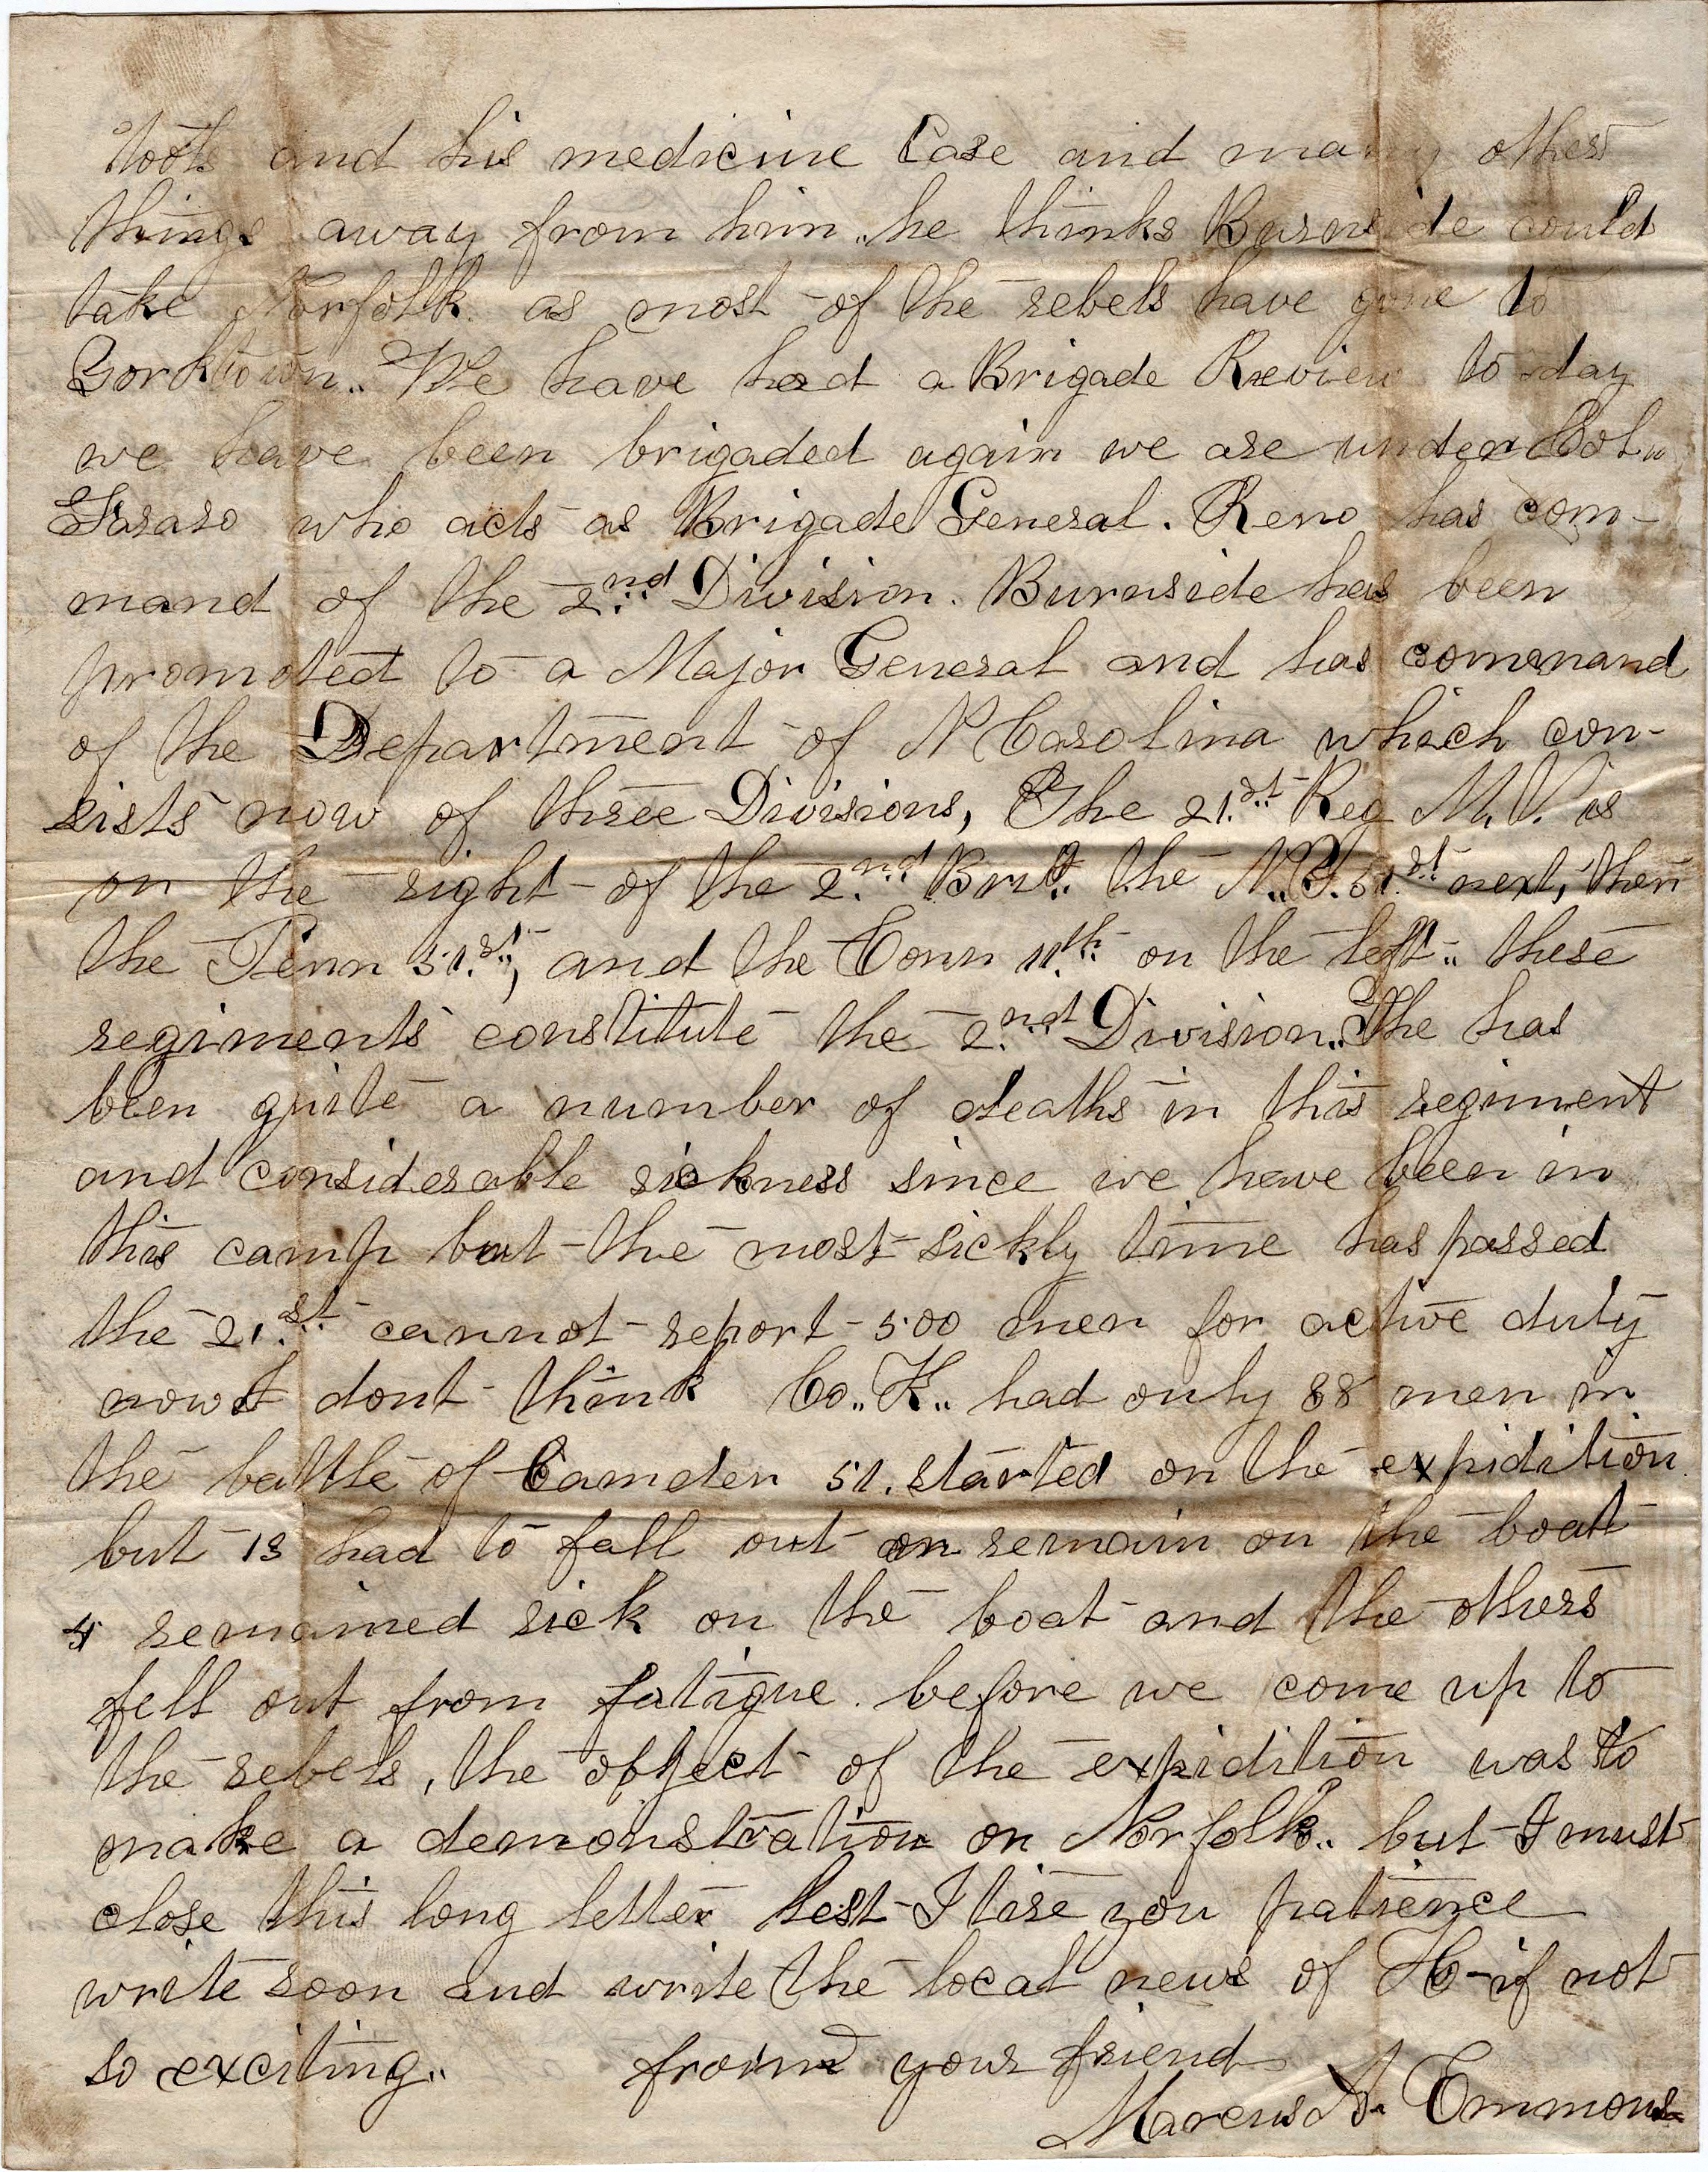 tools and his medicine Case and many other
things away from him „ he thinks Burnside could
take Norfolk as most of the rebels have gone to
Yorktown „ We have had a Brigade Review to day
we have been brigaded again we are under Col „
Fararo who acts as Brigade General . Reno has com-
mand of the 2nd Division . Burnside has been
promoted to a Major General and has command
of the Department of N Carolina which con-
sists now of three Divisions, The 21st Reg M. V. is
on the right of the 2nd the N. Y. 51st next, then
the Penn 51st, and the Conn 11th on the left „ these
regiments constitute the 2nd Division „ The has
been quite a number of deaths in this regiment
and considerable sickness since we have been in
this camp but the most sickly time has passed
the 21st cannot report 500 men for active duty
now I dont think Co „ K „ had only 38 men in
the battle of Camden 51 . started on the expidition
but 13 had to fall out on remain on the boat
remained sick on the boat and the others
fell out from fatigue . before we come up to
the rebels , the object of the expidition was to
make a demonstration on Norfolk „ but I must
close this long letter lest I tire you patience
write soon and write the local news of H- if not
so exciting „ from your friend
Marcus A. Emmons